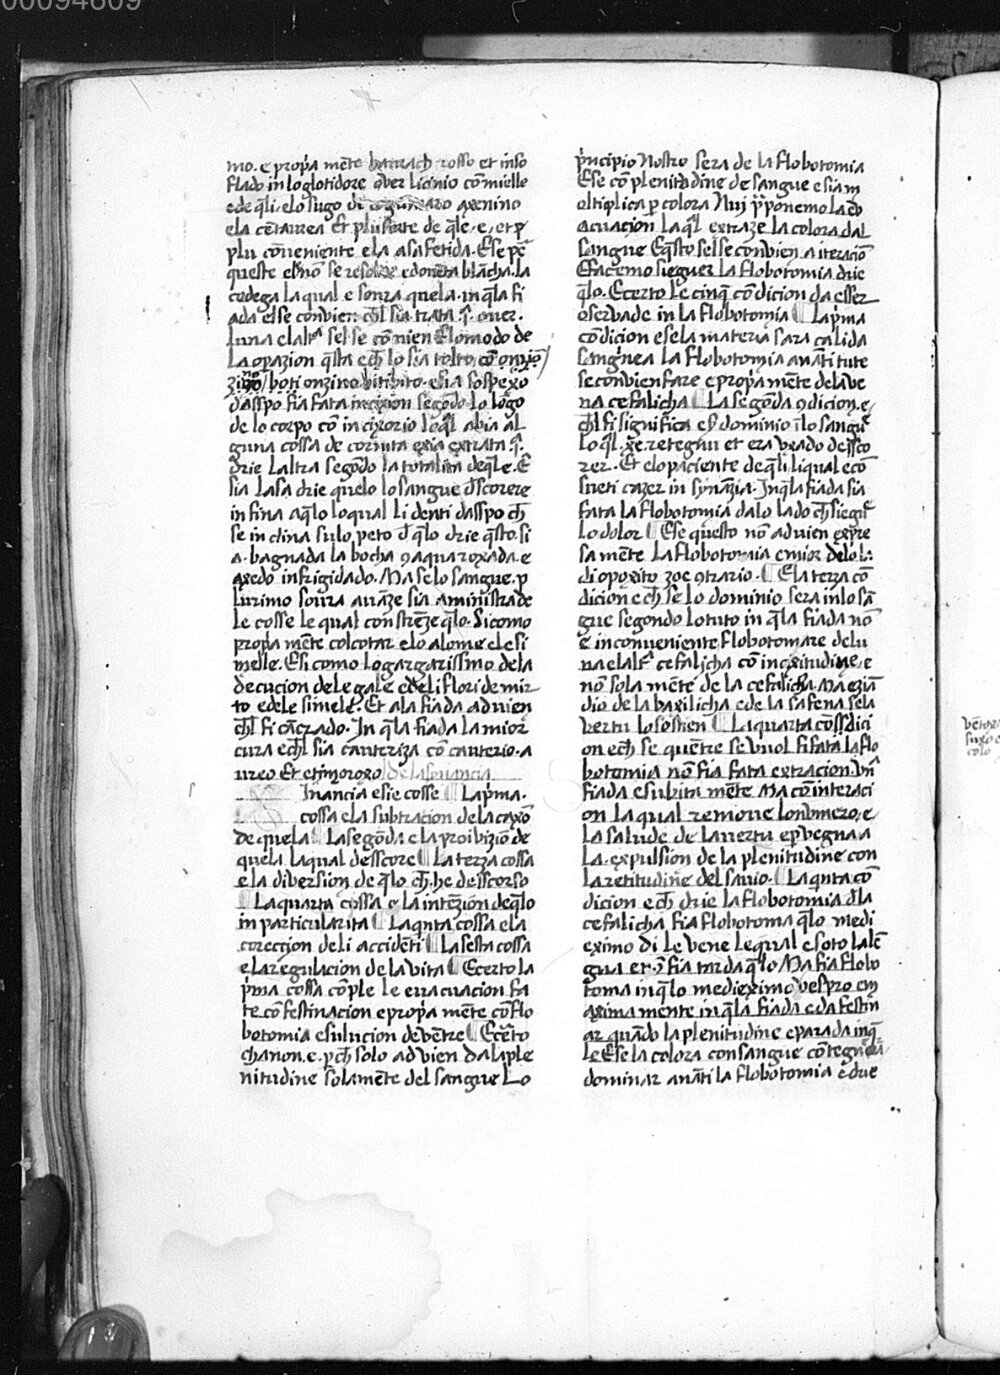 00094609
mo. e propa mẽte bairach rosso et inso
flado in loglotidore q̃ver licinio cõmiello
ede q̃li. elo sugo di cogumaro axenino
ela cẽtaurea Et plu forte de q̃le. e. et p
plu cõveniente ela asafetida. Ese pẽ
queste esnõ se resolve edonẽta blãcha. la
codega laqual e sovra quela. in q̃la fi
ada else convien chl̃ sia trata q̃. over.
luna elalt̃ᵃ sel se cõvien El modo de
la opazion q̃sta ech̃ lo sia tolto cõ onxiõ
boti onzino bitibito. esia sospexo
dasspo fia fata incixion segõdo lo lõgo
de lo corpo cõ incixorio loq̃l abia al
guna cossa de cornuta exia extrata q̃.
drie laltra segõdo la totalita deq̃le. E
sia lasa drie quelo lo sangue d̃scorere
in fina aq̃lo loqual li denti dasspo ch̃
se inclina sulo peto d̃ q̃lo drie q̃sto. si
a. bagnada la bocha ꝯ aqua roxada. e
axedo infrigidado. Ma se lo sangue. p
lurimo sovra avãze sia aministrade
le cosse le qual constrẽze q̃lo. Si como
propa mẽte colcotar elo alome ele si
melle. Esi como lo gargarissmo dela
decucion de le gale edeli flori de mir
to edele simele. Et ala fiada advien
chl̃ fi cãcrado. In q̃la fiada la mior
cura echl̃ sia cauteriza cõ cauterio. a
ureo Et etimoroxo de la sonancia
Inancia esie cosse ¶ La p̃ma.
cossa ela subtracion de la caxõ
de quela ¶ La segõda. ela proibiziõ de
quela. laqual desscore ¶ La terza cossa
e la diversion de q̃lo ch̃. he desscorso
¶ La quarta cossa e la intẽzion deq̃lo
in particularita ¶ La q̃nta cossa ela
corection de li accidẽti ¶ La sesta cossa
e la regulacion de la vita ¶ Ecerto la
p̃ma cossa cõple le evacuacion fa
te cõ festinacion e propa mẽte cõ flo
botomia esulucion de vẽtre ¶ Ecerto
chanon. e. pch̃ solo advien da la ple
nitudine solamẽte del sangue Lo
p̃ncipio Nostro sera de la flobotomia
Ese cõ plenitudine de sangue esia m
oltiplica p colora Nui p̃ponemo la ev
acuacion la q̃l extraze la colora dal
sangue Eq̃sto sel se convien a iteraciõ
Efacemo sieguer la flobotomia drie
q̃lo. Ecerto le cinq̃ cõdicion da esser
oservade in la flobotomia ¶ La p̃ma
cõdicion ese la materia sara calida
sangnea la flobotomia anãti tute
se convien fare e propa mẽte dela ve
na cefalicha ¶ La segõda ꝯdicion. e.
chl̃ fi significa el dominio ĩlo sangue
lo q̃l. xe. retegnu et era uxado dessco
rer. Et elo paciente de q̃li li qual e cõ
sueti cazer in synãzia. In q̃la fiada sia
fata la flobotomia dalo lado ch̃ siegue
lo dolor ¶ Ese questo nõ advien expre
samẽte la flobotomia e mior delo la
di opoxito zoe ꝯtrario. ¶ Ela terza cõ
dicion ech̃ se lo dominio sera in lo sã
gue segondo lo tuto in q̃la fiada nõ
e inconveniente flobotomare delu
na elalt̃ᵃ cefalicha cõ incertudine. e
nõ sola mẽte de la cefalicha. Ma eziã
dio de la baxilicha e de la safena se la
vertu lo sostien ¶ La quarta cõdici
on ech̃ se quẽtre se vuol fi fata la flo
botomia nõ fia fata extracion. vñ
fiada esubita mẽte Ma cõ interaci
on la qual remove lo nv̄mero. e.
La salude de la vertu e pvegna a
la. expulsion de la plenitudine con
la retitudine del savio. ¶ La q̃nta cõ
dicion ech̃ drie la flobotomia d̃la
cefalicha fia flobotoma q̃lo medi
eximo di le vene le qual e soto la lẽ
gua et nõ fia tarda q̃lo Ma fia flobo
toma in q̃lo medieximo vespro em
axima mente in q̃la fiada e da festin
ar quãdo la plenitudine e parada in q̃
le Ese la colora con sangue cõtegna
dominar anãti la flobotomia e due